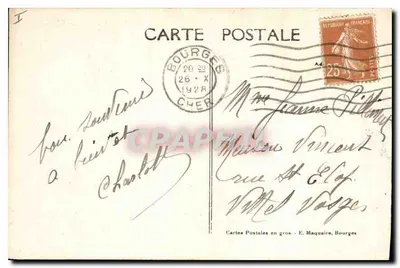 I
CARTE POSTALE
BOURGES
20
26 - X
1928
CHER
REPUBLIQUE FRANCAISE
25
bon souvenir
a bientot
Charlott
Mme Jeanne
Maison Vincent
rue St Elof
Vittel Vosges
Cartes Postales en gros. - E. Maquaire, Bourges